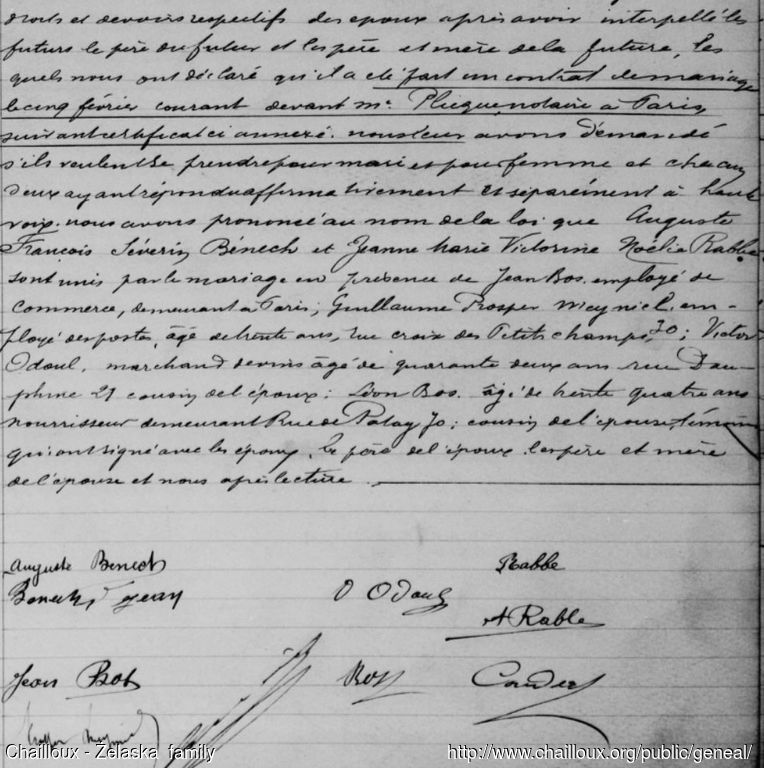 droits et devoirs respectifs des époux après avoir interpellé les
futurs le père du futur et les père et mère de la future, les
quels nous ont déclaré qu'il a été fait un contrat de mariage
le cinq février courant devant me notaire à Paris
suivant certificat ci annexé. nous leur avons demandé
s'ils veulent se prendre pour mari et pour femme et chacun
d'eux ayant répondu affirmativement et séparément à haute
voix. nous avons prononcé au nom de la loi que Auguste
François Séverin Bénech et Jeanne Marie Victorine Noélie Rabbe
sont unis par le mariage en présence de Jean Bos. employé de
commerce, demeurant à Paris; Guillaume Prosper em-
ployé des postes, âgé de trente ans, rue croix des Petits champs, 30; Victor
Odoul, marchand de vins âgé de quarante deux ans rue Dau-
phine 21 cousin de l'époux; Léon Bos. âgé de trente quatre ans
nourrisseur demeurant Rue de Patay 70; cousin de l'épouse, témoins
qui ont signé avec les époux, le père de l'époux. les père et mère
de l'épouse et nous après lecture.
Auguste Benech Rabbe
Benech Jean Odoul
Rable
Jean Bos Bos
Chailloux - Želaska family http://www.chailloux.org/public/geneal/